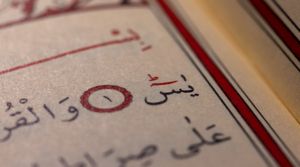 يس ١ وَالْقُر
عَلَى صِرَاطٍ